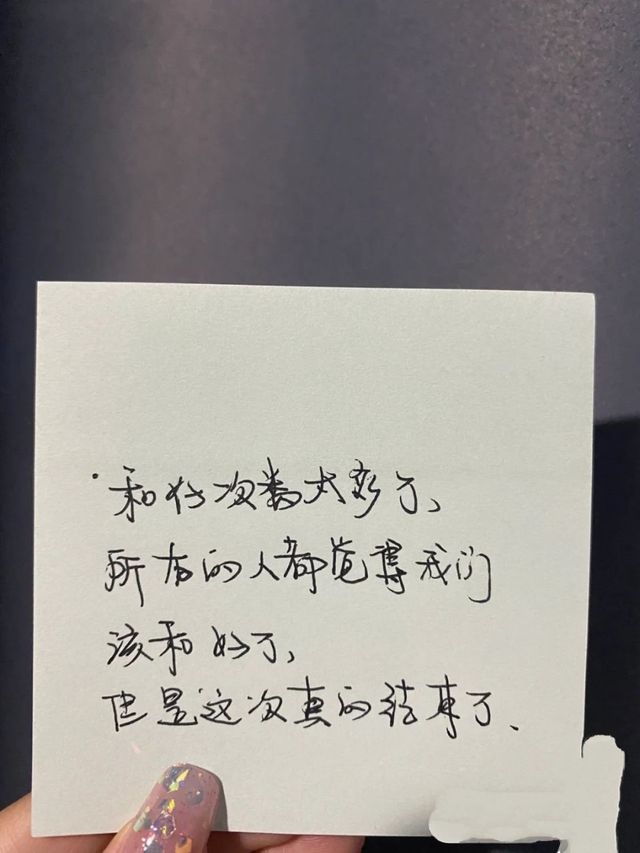 ·和好次数太多了、
所有的人都觉得我们
该和好了、
但是这次真的结束了、